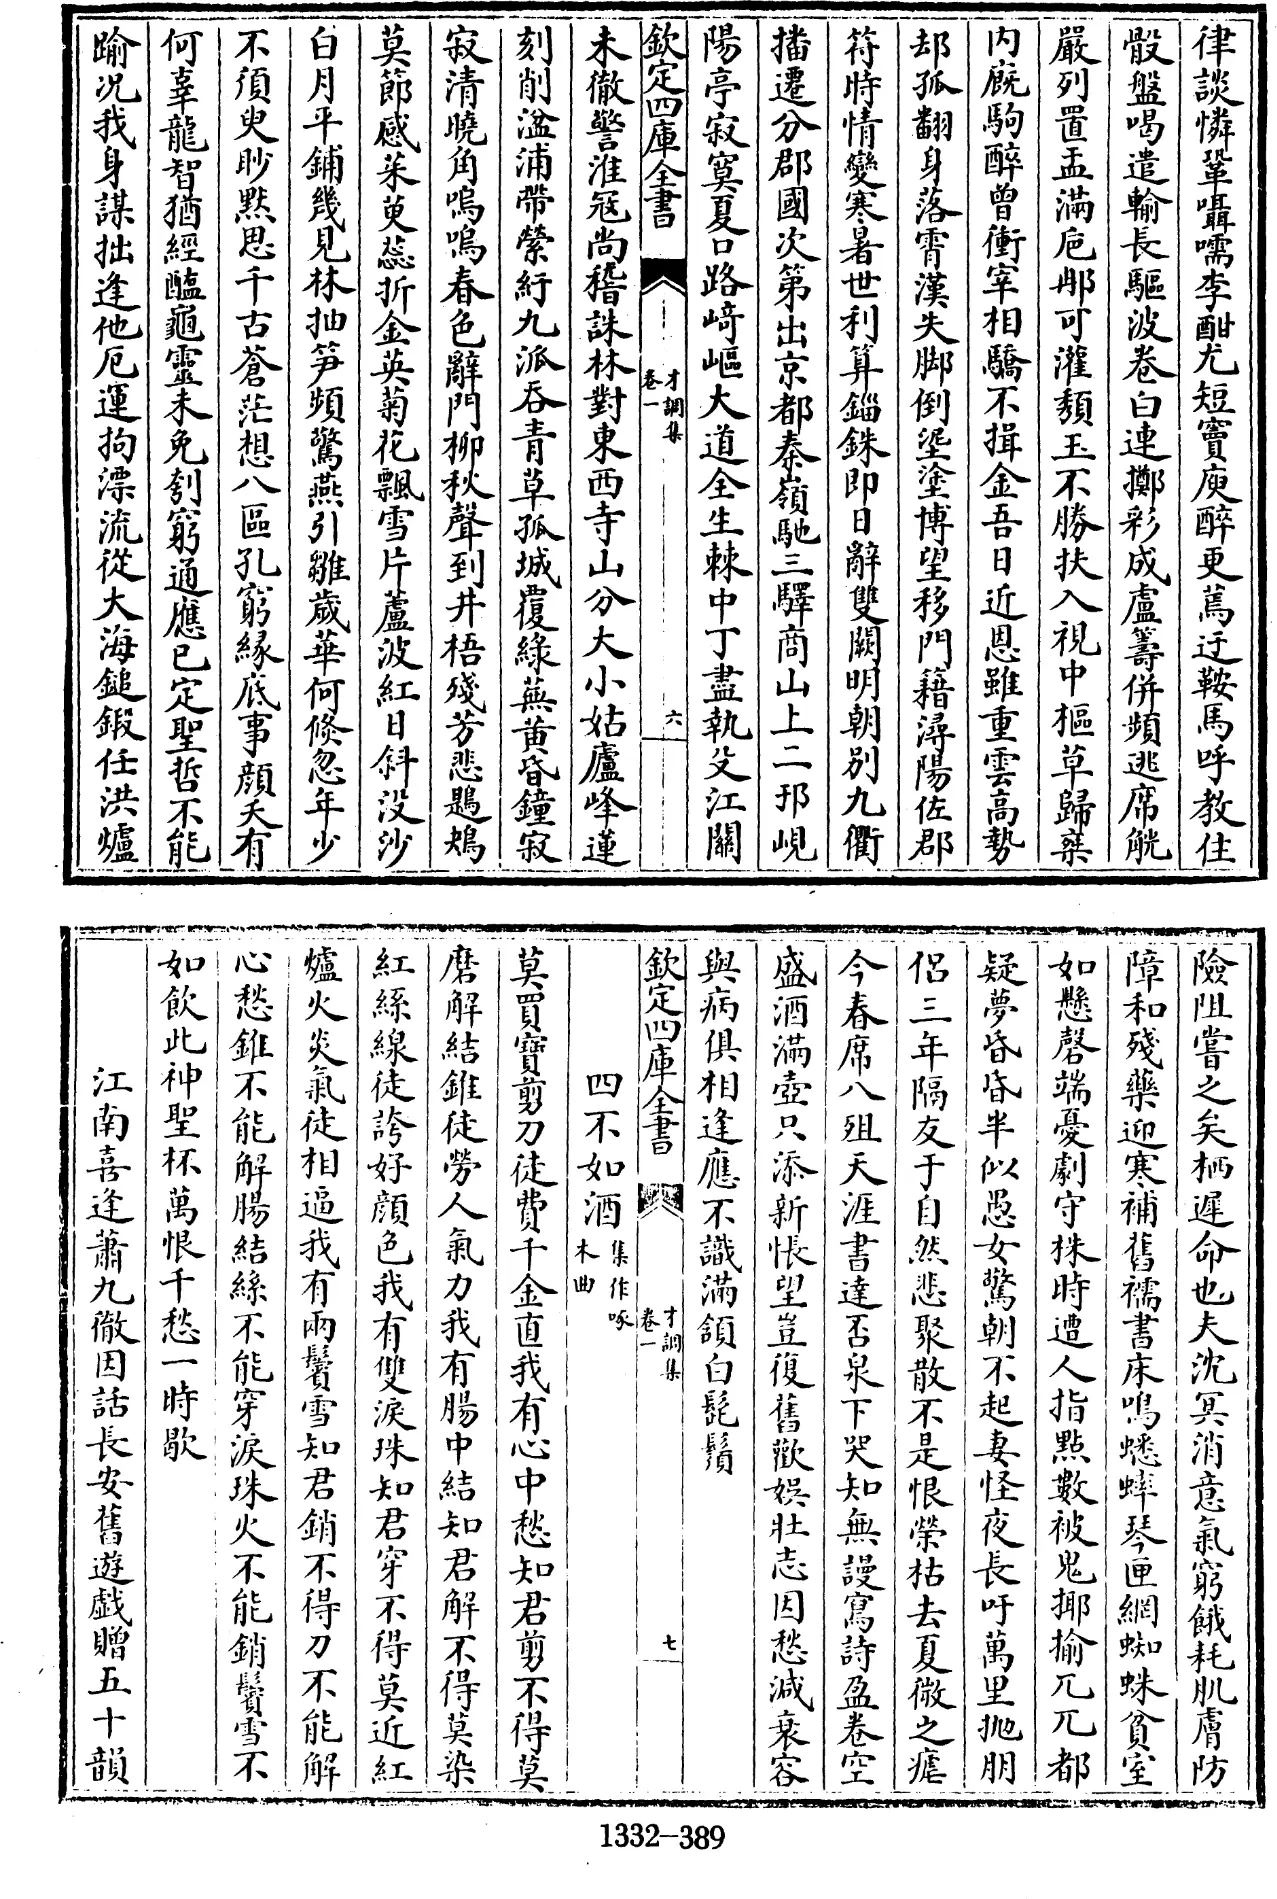 律談憐鞏囁嚅李酣尤短竇庾醉更蔫迂鞍馬呼教住
骰盤喝遣輸長驅波卷白連擲彩成盧籌併頻逃席觥
嚴列置盂滿卮那可灌頽玉不勝扶入視中樞草歸乘
内廐駒醉曾衝宰相驕不揖金吾日近恩雖重雲高勢
却孤翻身落霄漢失脚倒埿塗博望移門籍潯陽佐郡
符時情變寒暑世利算錙銖即日辭雙闕明朝别九衢
播遷分郡國次第出京都秦嶺馳三驛商山上二邘峴
陽亭寂寞夏口路崎嶇大道全生棘中丁盡執殳江關
欽定四庫全書
才調集
卷一
六
未徹警淮冦尚稽誅林對東西寺山分大小姑廬峰蓮
刻削湓浦帶縈紆九派吞青草孤城覆綠蕪黄昏鐘寂
寂清曉角嗚嗚春色辭門柳秋聲到井梧殘芳悲鶗鴂
莫節感茱萸蕊折金英菊花飄雪片蘆波紅日斜没沙
白月平鋪幾見林抽笋頻驚燕引雛歲華何倐忽年少
不須臾眇黙思千古蒼茫想八區孔窮緣底事顔夭有
何辜龍智猶經醢龜靈未免刳窮通應已定聖哲不能
踰况我身謀拙逢他厄運拘漂流從大海鎚鍛任洪爐
險阻嘗之矣栖遲命也夫沈冥消意氣窮餓耗肌膚防
障和殘藥迎寒補舊襦書床鳴蟋蟀琴匣網蜘蛛貧室
如懸磬端憂劇守株時遭人指點數被鬼揶揄兀兀都
疑夢昏昏半似愚女驚朝不起妻怪夜長吁萬里抛朋
侣三年隔友于自然悲聚散不是恨榮枯去夏微之瘧
今春席八殂天涯書達否泉下哭知無謾寫詩盈卷空
盛酒滿壺只添新悵望豈復舊歡娯壯志因愁減衰容
與病俱相逢應不識滿頷白髭鬚
欽定四庫全書
才調集
卷一
七
四不如酒集作啄木曲
莫買寶剪刀徒費千金直我有心中愁知君剪不得莫
磨解結錐徒勞人氣力我有腸中結知君解不得莫染
紅絲線徒誇好顔色我有雙淚珠知君穿不得莫近紅
爐火炎氣徒相逼我有兩鬢雪知君銷不得刀不能解
心愁錐不能解腸結絲不能穿淚珠火不能銷鬢雪不
如飲此神聖杯萬恨千愁一時歇
江南喜逢蕭九徹因話長安舊遊戲贈五十韻
1332-389